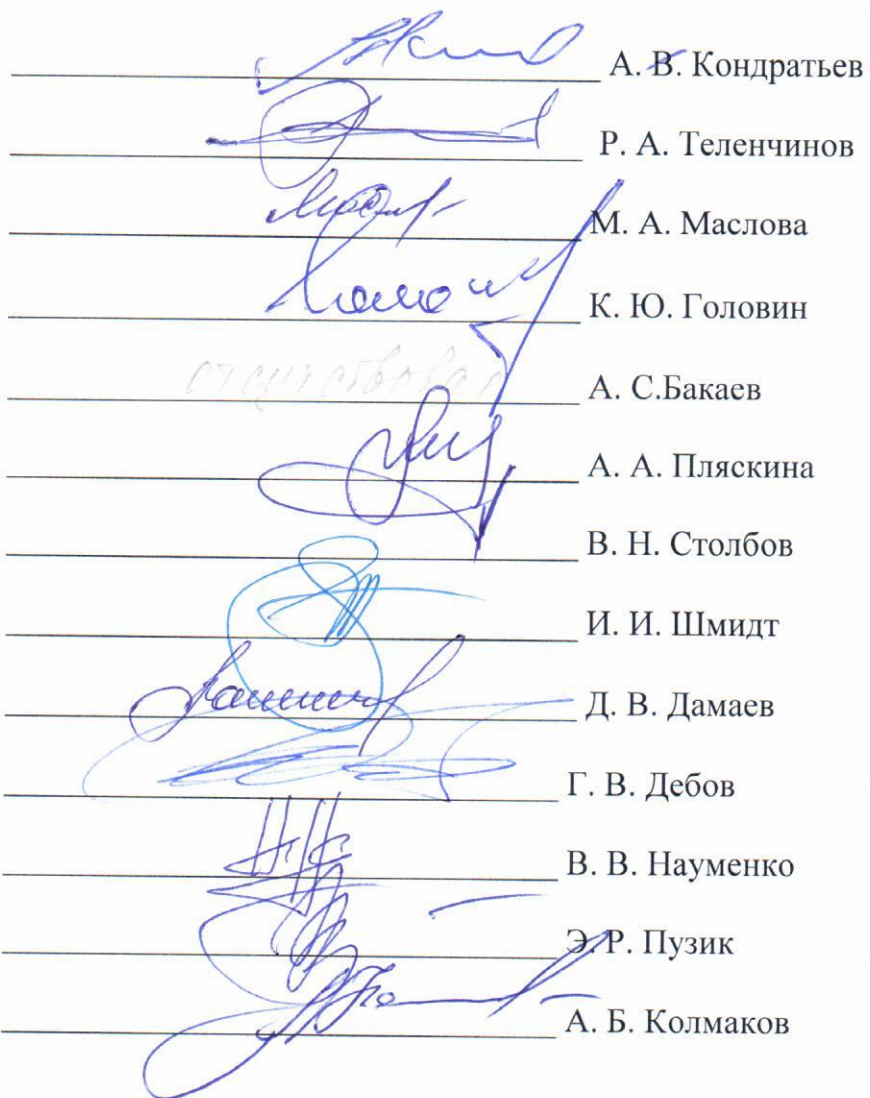 А. В. Кондратьев
Р. А. Теленчинов
М. А. Маслова
К. Ю. Головин
отсутствовал А. С.Бакаев
А. А. Пляскина
В. Н. Столбов
И. И. Шмидт
Д. В. Дамаев
Г. В. Дебов
В. В. Науменко
Э. Р. Пузик
А. Б. Колмаков